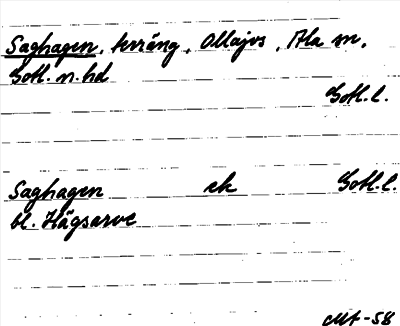 Saghagen, terräng, Ollajvs, Ala sn,
Gotl. n. hd
Gotl. l.
Saghagen ek Gotl. l.
bl. Hägsarve
Mf-58